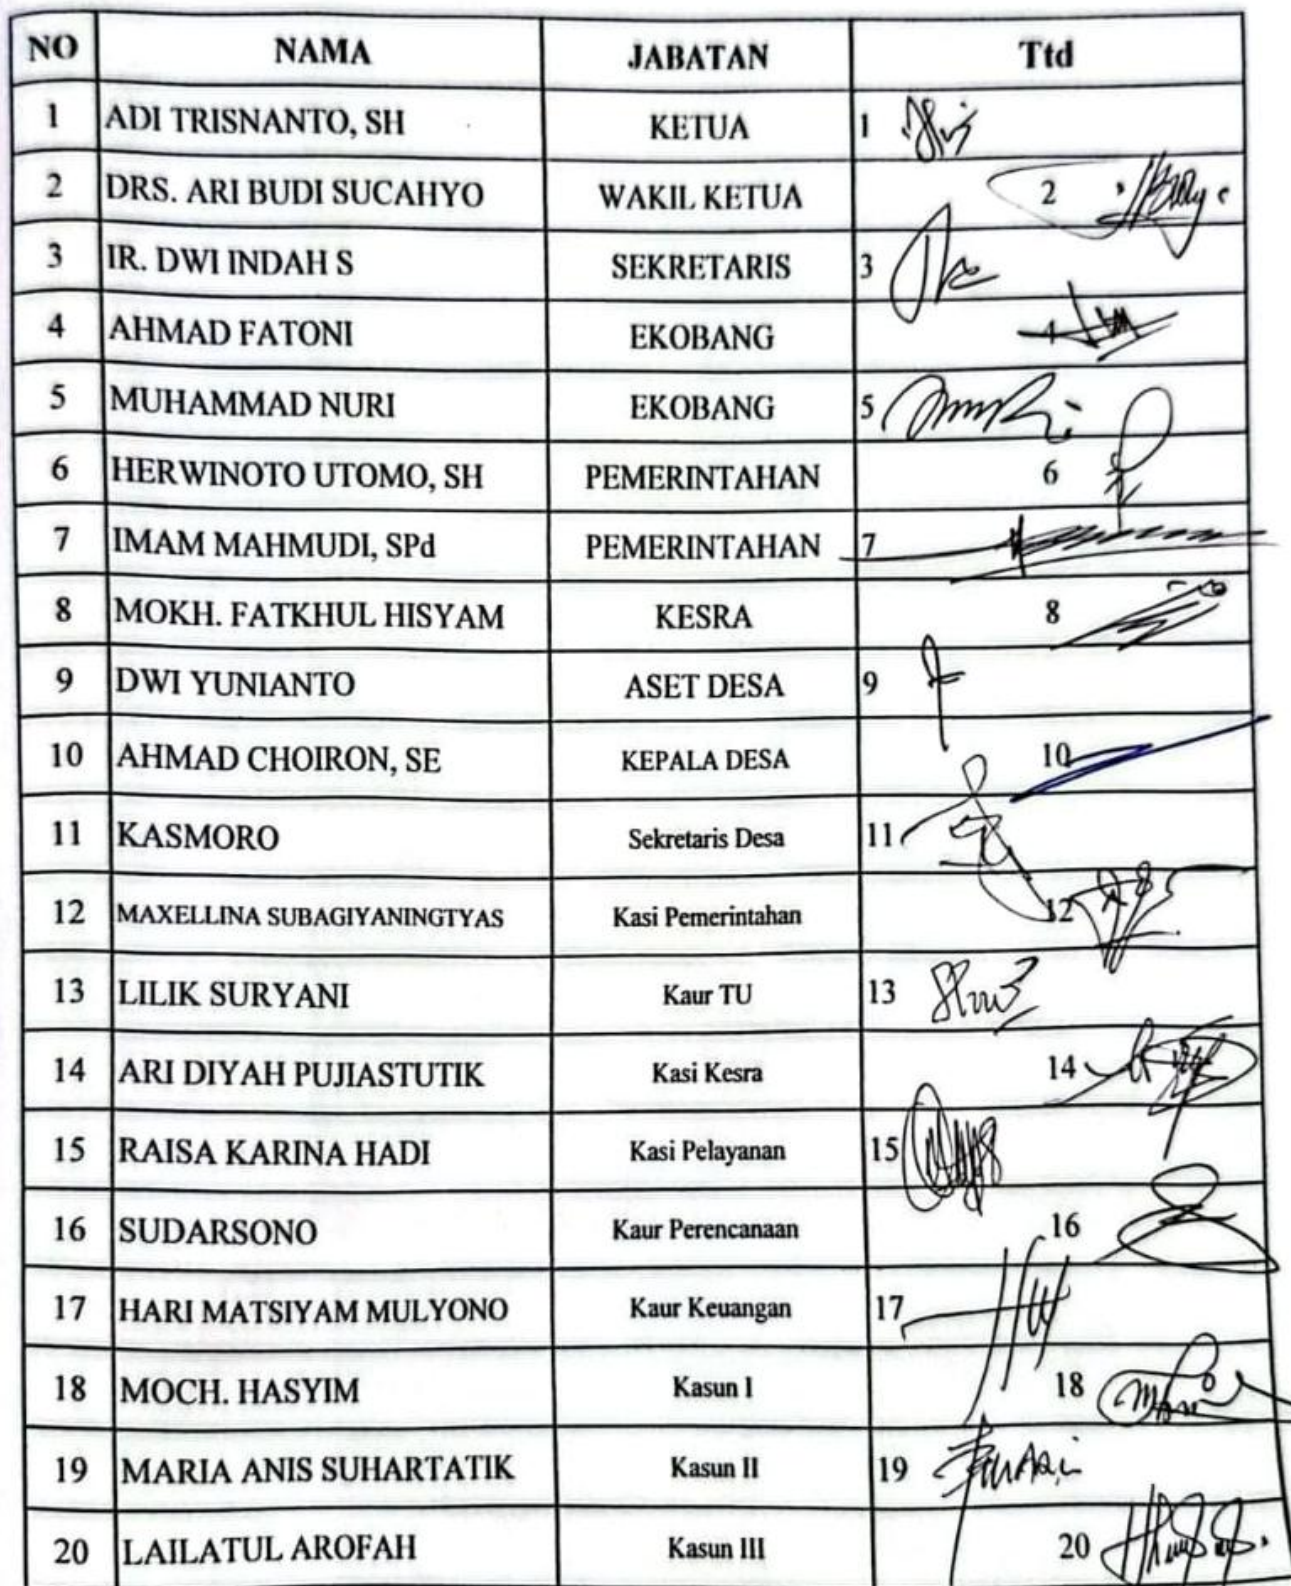 NO NAMA JABATAN Ttd
1 ADI TRISNANTO, SH KETUA 1
2 DRS. ARI BUDI SUCAHYO WAKIL KETUA 2
3 IR. DWI INDAH S SEKRETARIS 3
4 AHMAD FATONI EKOBANG 4
5 MUHAMMAD NURI EKOBANG 5
6 HERWINOTO UTOMO, SH PEMERINTAHAN 6
7 IMAM MAHMUDI, SPd PEMERINTAHAN 7
8 MOKH. FATKHUL HISYAM KESRA 8
9 DWI YUNIANTO ASET DESA 9
10 AHMAD CHOIRON, SE KEPALA DESA 10
11 KASMORO Sekretaris Desa 11
12 MAXELLINA SUBAGIYANINGTYAS Kasi Pemerintahan 12
13 LILIK SURYANI Kaur TU 13
14 ARI DIYAH PUJIASTUTIK Kasi Kesra 14
15 RAISA KARINA HADI Kasi Pelayanan 15
16 SUDARSONO Kaur Perencanaan 16
17 HARI MATSIYAM MULYONO Kaur Keuangan 17
18 MOCH. HASYIM Kasun I 18
19 MARIA ANIS SUHARTATIK Kasun II 19
20 LAILATUL AROFAH Kasun III 20